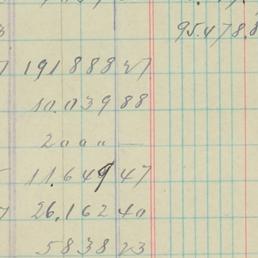 95.478.8
191888 27
10.039 88
2000 —
11.649 47
26.162 40
5838 23